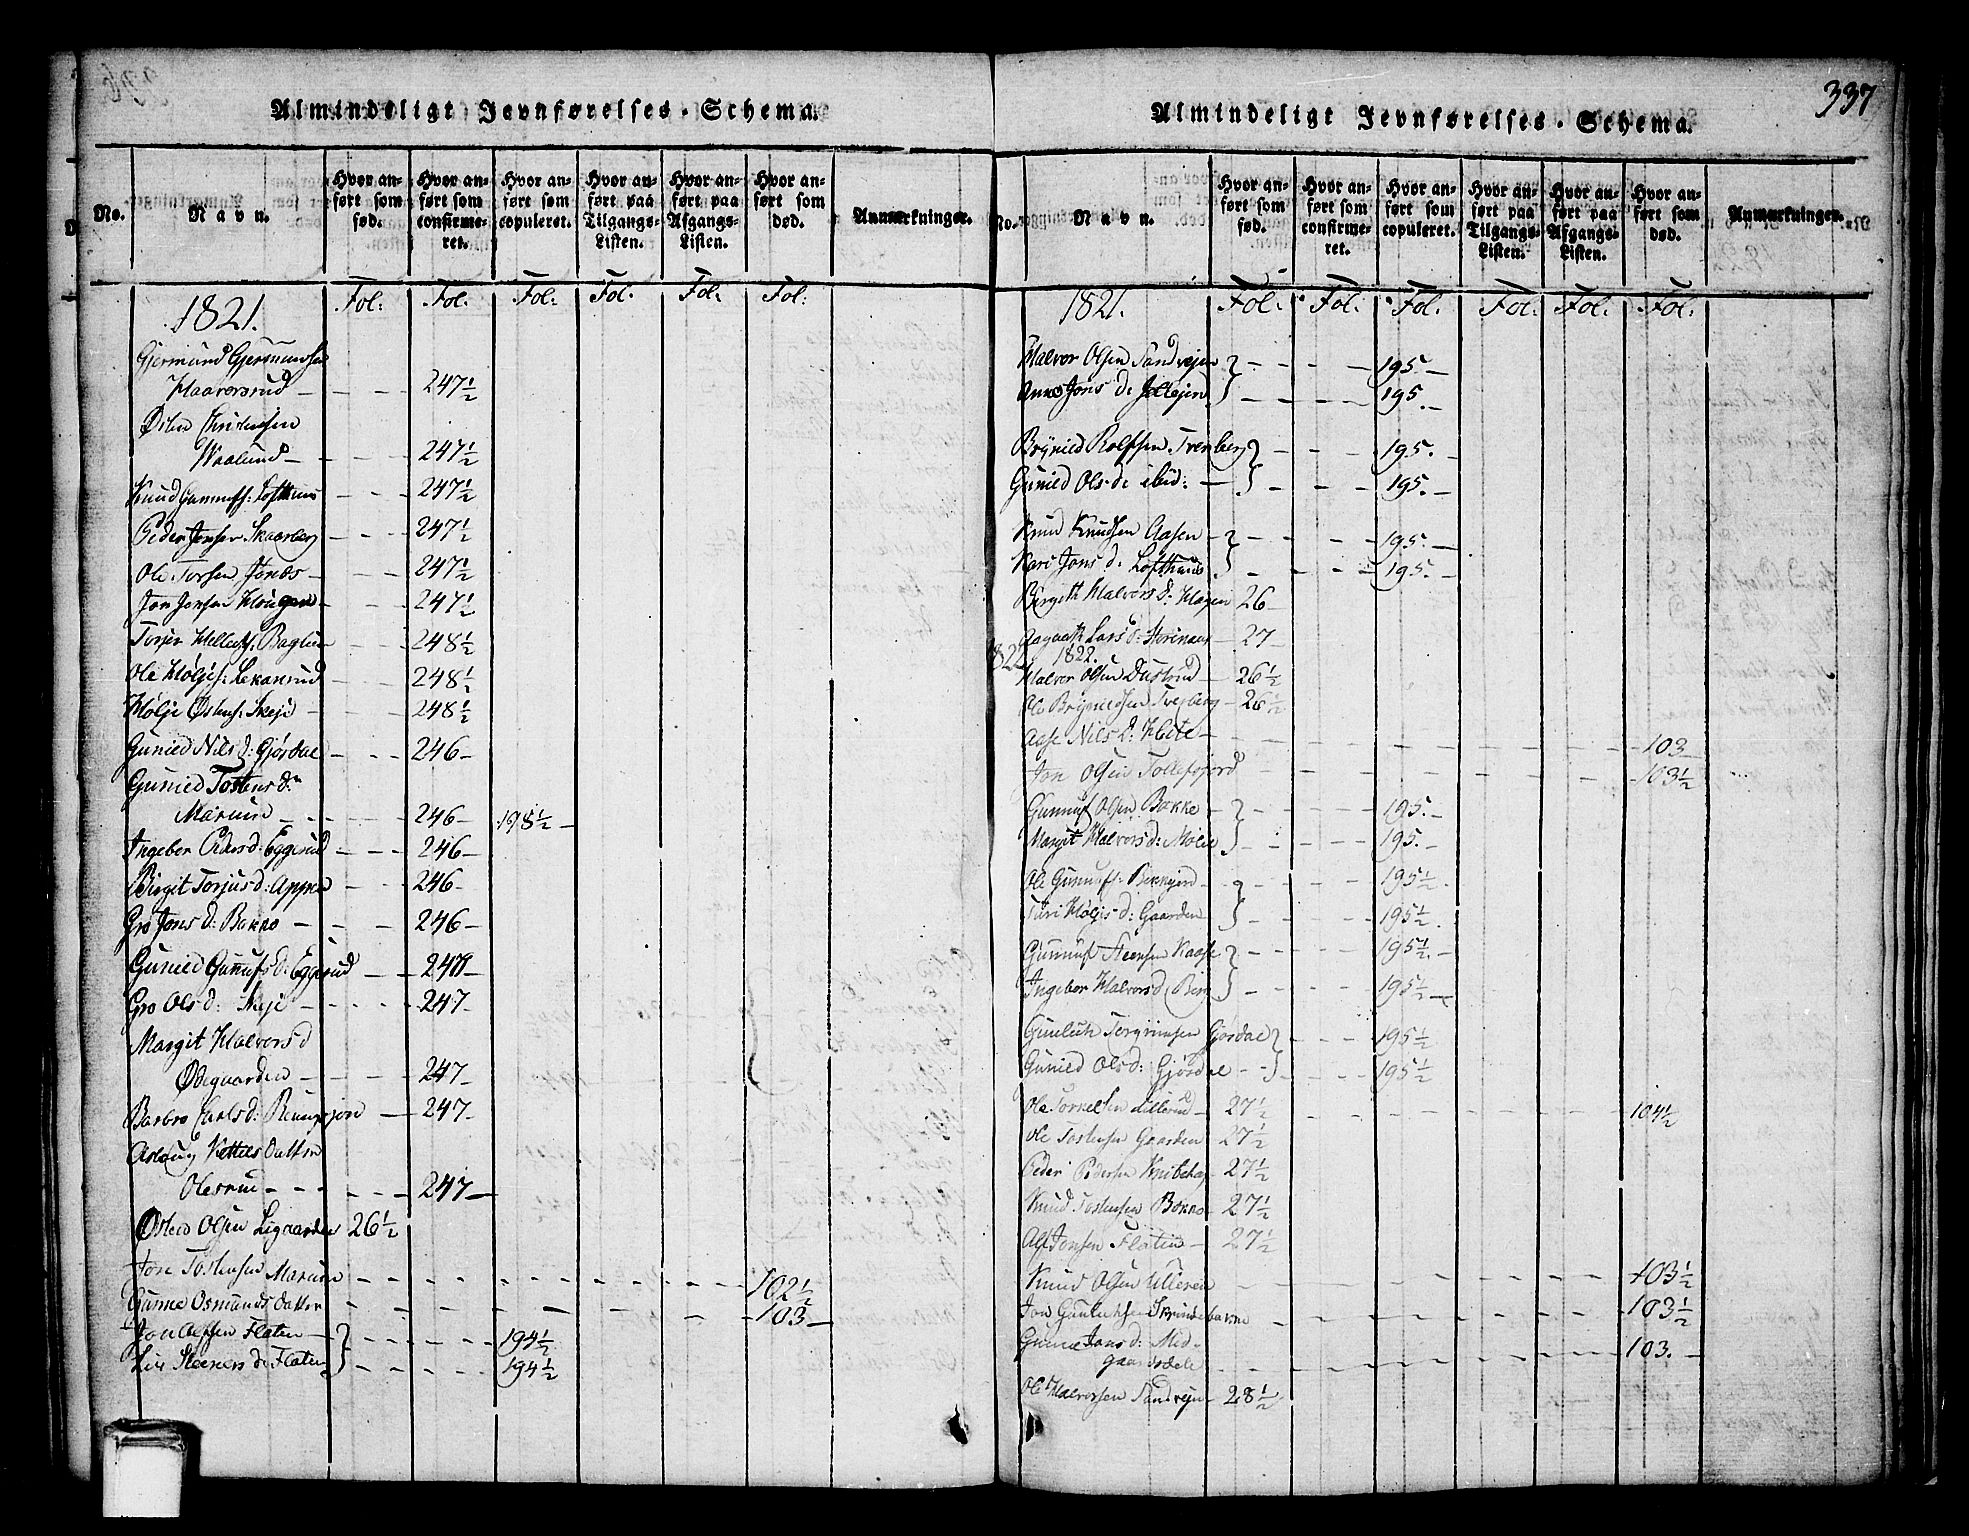 337
Almindeligt Jevnførelses-Schema.
No.
Navn.
Hvor anført som fød.
Hvor anført som confirmeret.
Hvor anført som copuleret.
Hvor anført paa Tilgangs-Listen.
Hvor anført paa Afgangs-Listen.
Hvor anført som død.
Anmærkninger.
1821. Fol: Fol: Fol: Fol: Fol: Fol:
Gjermund Gjermundsen
Haaversrud - - - 247½
Østen Christensen
Waalund - - - 247½
Knud Gunnufs: Lofthuus - - - 247½
Peder Jensen Skaarberg - - - 247½
Ole Torsen Jonas - - - 247½
Jon Jonsen Hougen - - - 247½
Torjer Hellechs: Baglien - - - 248½
Ole Høljes: Lekanrud - - - 248½
Hølje Østens: Skeje - - - 248½
Gunied Nils d: Gjósdal - - - 246
Gunied Tostens d:
Marum - - - 246 - 198½
Ingebor Peders d: Eggerud - - - 246
Birgit Torjus d: Appen - - - 246
Gro Jons d: Bakke - - - 246
Gunied Gunufs d: Eggerud - - 247
Gro Ols d: Skeje - - - 247
Margit Halvors d
Ødegaarden - - - 247
Barbro Carls d: - 247
Aslaug Kittels datter
Olesrud - - - 247
Østen Olsen Ligaarden 26½
Jon Tostensen Marum - - - 102½
Gunne Osmunds datter - - - 103
Jon Olsen Flaten } - - - 194½
Live Steeners d: Flaten } - - - 194½
Almindeligt Jevnførelses-Schema.
No.
Navn.
Hvor anført som fød.
Hvor anført som confirmeret.
Hvor anført som copuleret.
Hvor anført paa Tilgangs-Listen.
Hvor anført paa Afgangs-Listen.
Hvor anført som død.
Anmærkninger.
1821. Fol: Fol: Fol: Fol: Fol: Fol:
Halvor Olsen Sandvejen } - - - 195.
Anne Jons d: } - - - 195.
Brynild Rolfsen Tverberg } - - - 195.
Gunied Ols d: ibid: } - - - 195.
Knud Knudsen Aasen } - - - 195.
Kari Jons d: Lofthuus } - - - 195.
Birgith Halvors d: Hagen 26
Aagaath Lars d: - 27
1822.
Halvor Olsen - 26½
Ole Bryniedsen Tverberg - 26½
Aase Nils d: - - - 103
Jon Olsen Tollefsjord - - - 103½
Gunnuf Olsen Bakke } - - - 195.
Margit Halvors d: Moen } - - - 195.
Ole Gunnufs: } - - - 195½
Turi Høljes d: Gaarden } - - - 195½
Gunnuf Steensen Kaase } - - - 195½
Ingebor Halvors d } - - - 195½
Gunleik Torgrimsen Gjósdal } - - - 195½
Gunied Ols d: Gjósdal } - - - 195½
Ole Torkelsen Lillerud - 27½ - - - 104½
Ole Tostensen Gaarden 27½
Peder Pedersen - 27½
Knud Tostensen Bakke - 27½
Alf Jonsen Flaten - 27½
Knud Olsen Ulleren - - - 103½
Jon Gunleiksen - - - 103½
Gunne Jons d: Mid-
gaarsdele - - - 103.
Ole Halvorsen Sandvejen - 28½